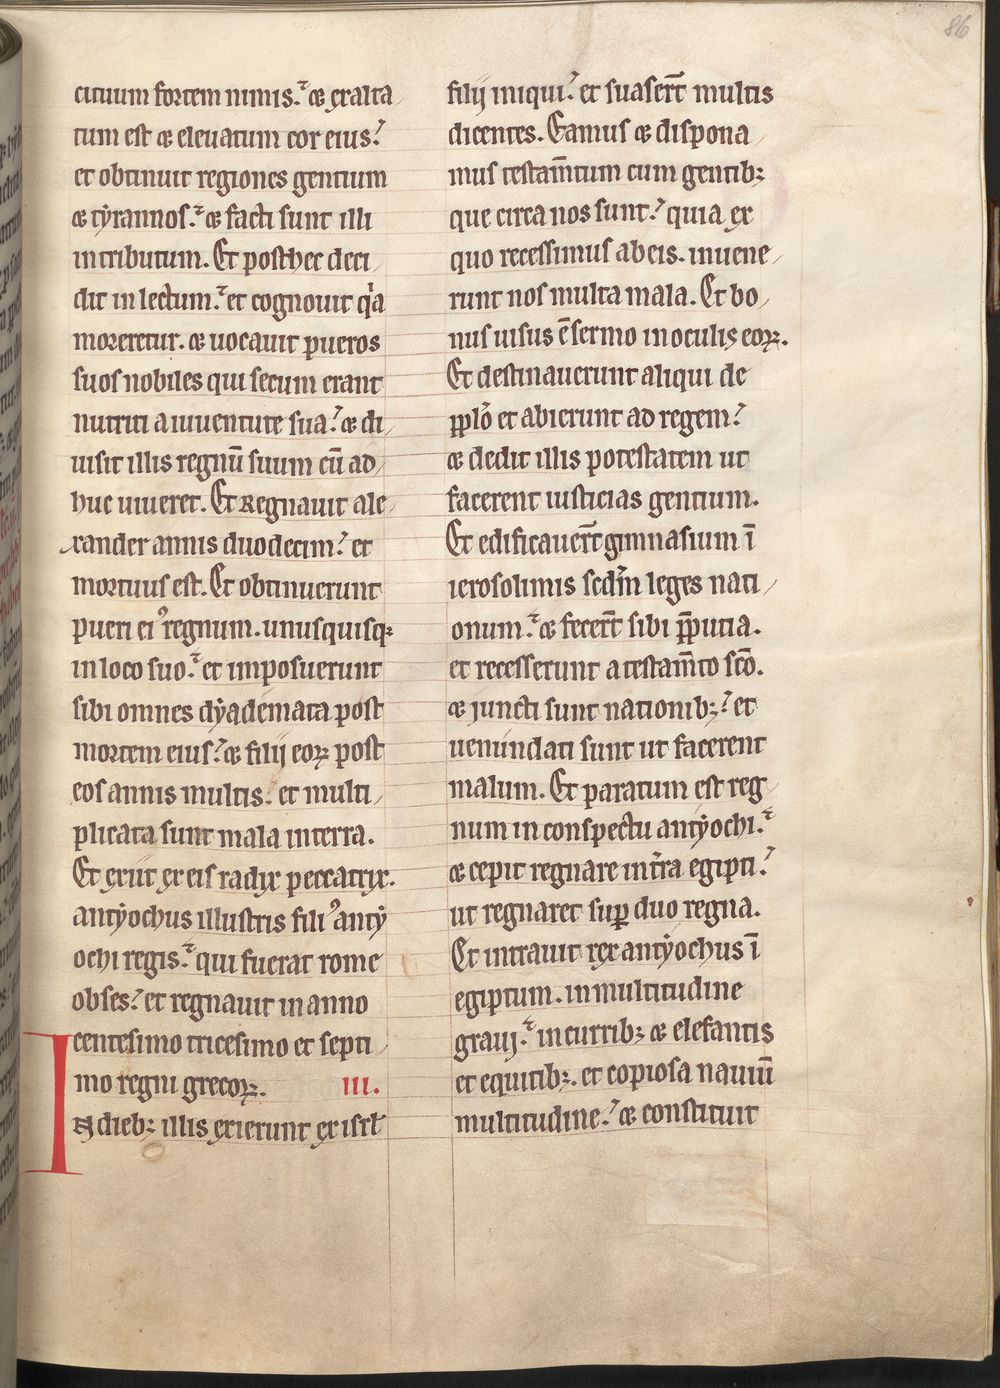 86
cituum fortem nimis. & exalta
tum est & eleuatum cor eius.
et obtinuit regiones gentium
& tyrannos. & facti sunt illi
in tributum. Et post hec deci
dit in lectum. et cognouit q̇a
moreretur. & uocauit pueros
suos nobiles qui secum erant
nutriti a iuuentute sua. & di
uisit illis regnū suum cū ad
huc uiueret. Et Regnauit ale
xander annis duodecim. et
mortuus est. Et obtinuerunt
pueri eiꝰ regnum. unusquisqꝫ
in loco suo. et imposuerunt
sibi omnes dyademata post
mortem eius. & filij eoꝝ post
eos annis multis. et multi
plicata sunt mala in terra.
Et exiit ex eis radix peccatrix.
antyochus illustris filiꝰ anty
ochi regis. qui fuerat rome
obses. et regnauit in anno
centesimo tricesimo et septi
mo regni grecoꝝ. III.
In diebꝫ illis exierunt ex isrl̄
filij iniqui. et suaser̄t multis
dicentes. Eamus & dispona
mus testam̄tum cum gentibꝫ
que circa nos sunt. quia ex
quo recessimus ab eis. inuene
runt nos multa mala. Et bo
nus uisus ē sermo in oculis eoꝝ.
Et destinauerunt aliqui de
pp̱lo et abierunt ad regem.
& dedit illis potestatem ut
facerent iusticias gentium.
Et edificauer̄t gimnasium ī
ierosolimis scd̄m leges nati
onum. & fecer̄t sibi p̄putia.
et recesserunt a testam̄to sc̄o.
& juncti sunt nationibꝫ. et
uenundati sunt ut facerent
malum. Et paratum est reg
num in conspectu antyochi.
& cepit regnare in t̄ra egipti.
ut regnaret suꝑ duo regna.
Et intrauit rex antyochus ī
egiptum. in multitudine
graui. in curribꝫ & elefantis
et equitibꝫ. et copiosa nauiū
multitudine. & constituit